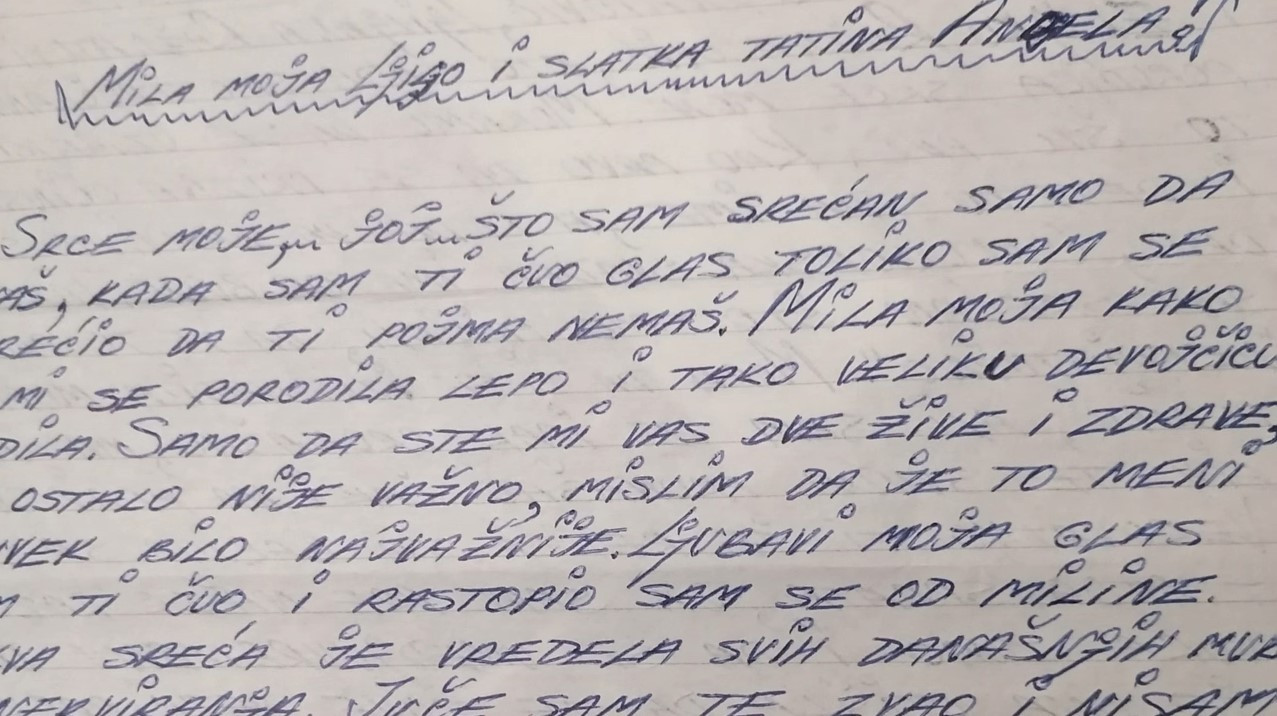 Mila moja Ljiljo i slatka tatina Anđela!
Srce moje,... joj... što sam srećan samo da
kada sam ti čuo glas toliko sam se
da ti pojma nemaš. Mila moja kako
mi se porodila lepo i tako veliku devojčicu
Samo da ste mi vas dve žive i zdrave,
ostalo nije važno, mislim da je to meni
bilo najvažnije. Ljubavi moja glas
ti čuo i rastopio sam se od miline.
sreća je vredela svih današnjih
Juče sam te zvao i nisam